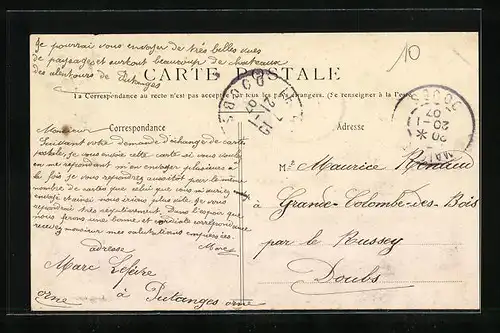 Je pourrai vous envoyer de très belles vues
de paysages et surtout beaucoup de chateaux
des alentours de Putanges
10
CARTE POSTALE
La Correspondance au recto n'est pas acceptée par tous les pays étrangers. (Se renseigner à la
Correspondance
Adresse
Monsieur
Suivant votre demande d'échange de cartes
postale, je vous envoie cette carte si vous voulez
en me répondant m'en envoyer plusieurs à
la fois je vous répondrez aussitôt par le même
nombre de cartes que celui que vous m'aurez
envoyé et ainsi nous irions plus vite. Je vous
repondrai très regulièrement. Dans l'espoir que
nous ferons une bonne et cordiale correspondance
recevez monsieur mes salutations empressées.
Marc
adresse
Marc Lefèvre
à Putanges orne
orne
Mr Maurice
à Grande-Colombe-des-Bois
par le Russey
Doubs
DOUBS
20